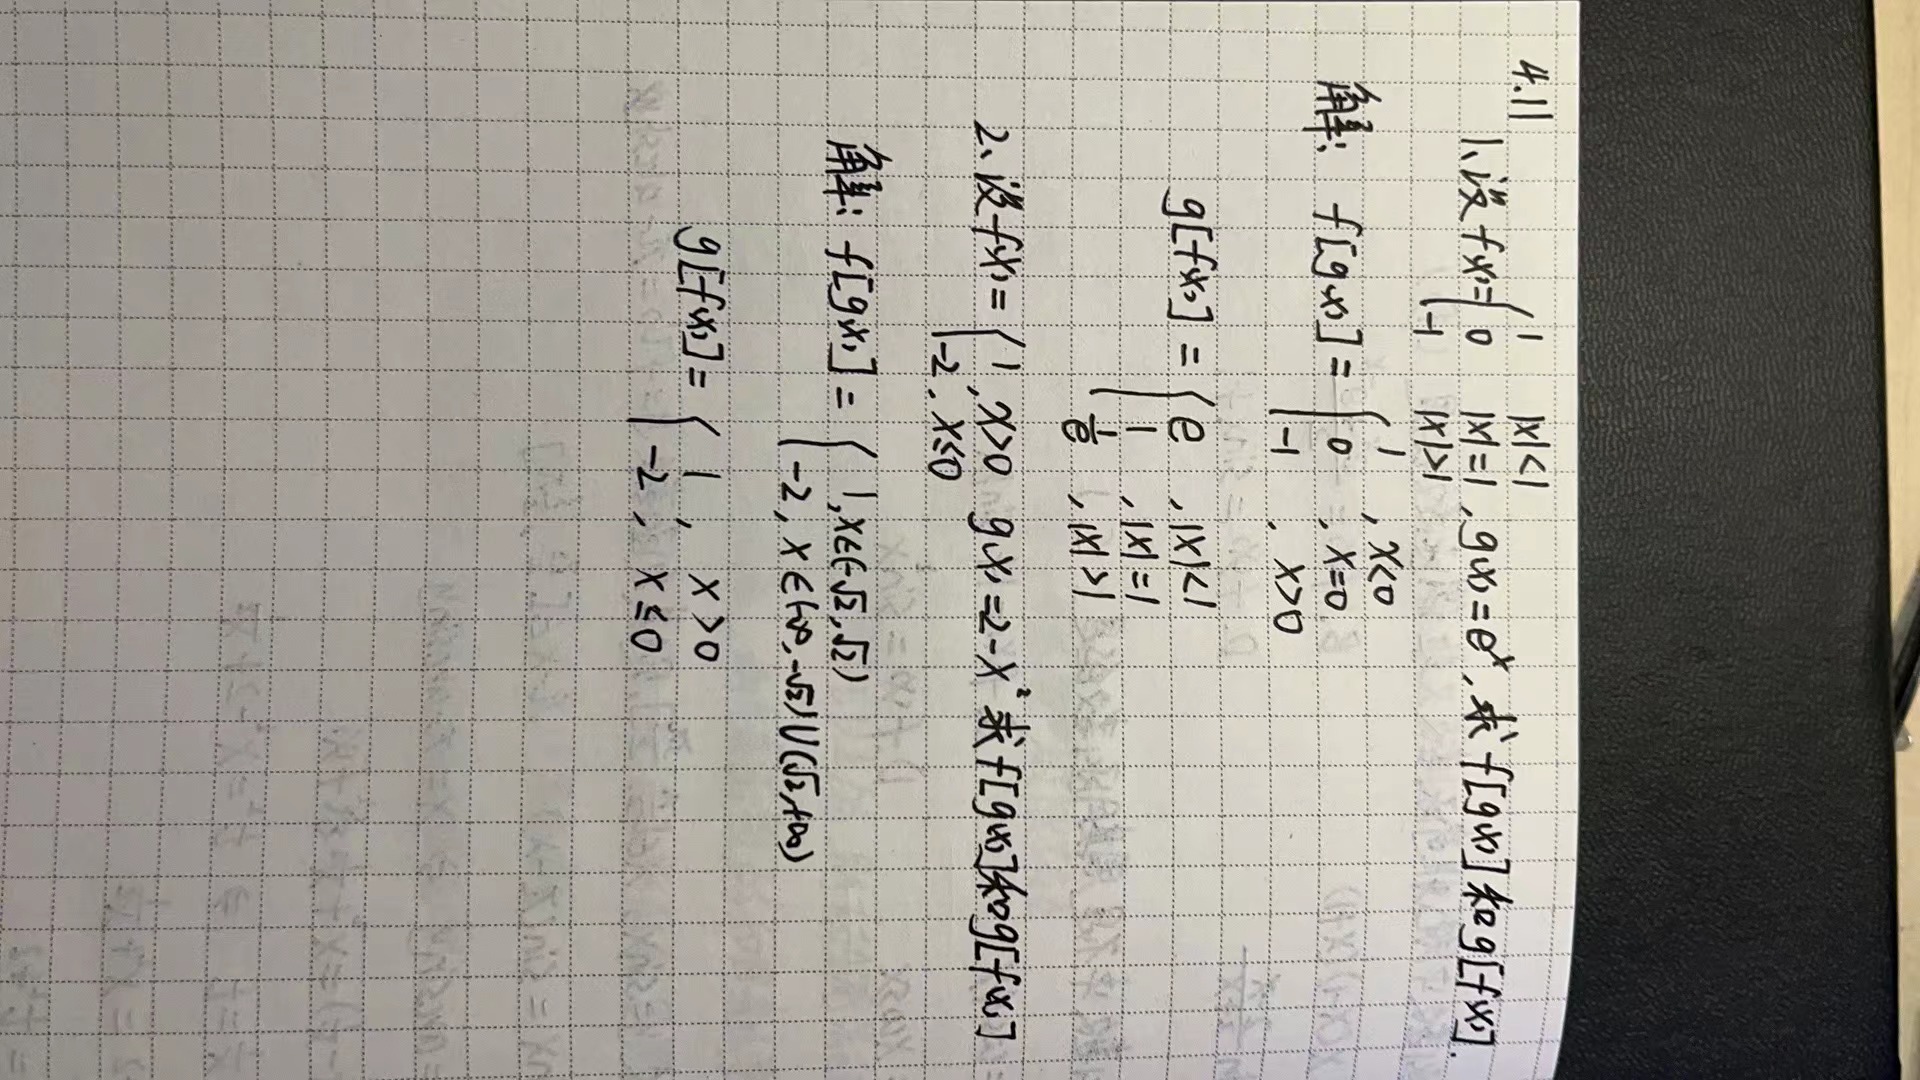 4.11
1、设f(x)={ 1 |x|<1
0 |x|=1 , g(x)=eˣ, 求 f[g(x)]和g[f(x)].
-1 |x|>1
解: f[g(x)]={ 1 , x<0
0 , x=0
-1 , x>0
g[f(x)]={ e , |x|<1
1 , |x|=1
1/e , |x|>1
2、设f(x)={ 1 , x>0 g(x)=2-x² 求f[g(x)]和g[f(x)]
-2 , x≤0
解: f[g(x)]={ 1 , x∈(-√2,√2)
-2 , x∈(-∞,-√2)∪(√2,+∞)
g[f(x)]={ 1 , x>0
-2 , x≤0